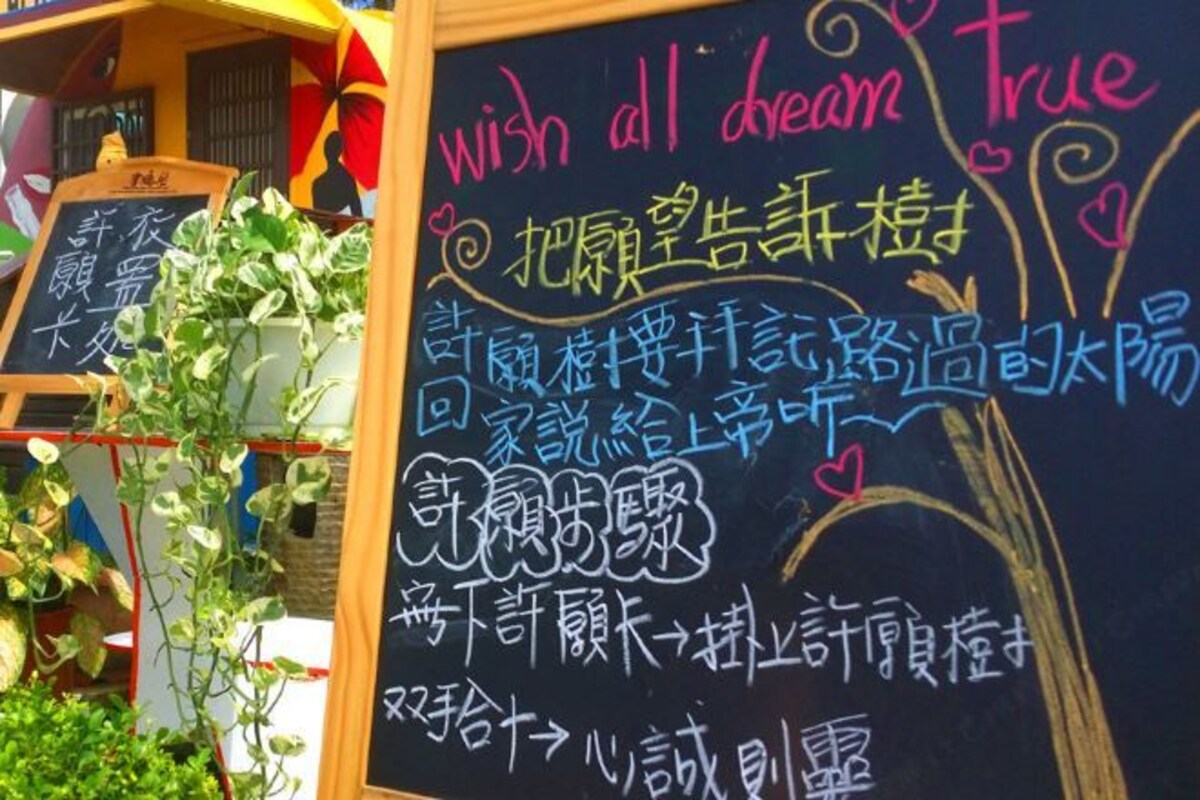 wish all dream True
把願望告訴樹
許願樹要拜託路過的太陽
回家説給上帝听~
許願步驟
寫下許願卡→掛上許願樹
双手合十→心誠則靈
許願卡
放置处